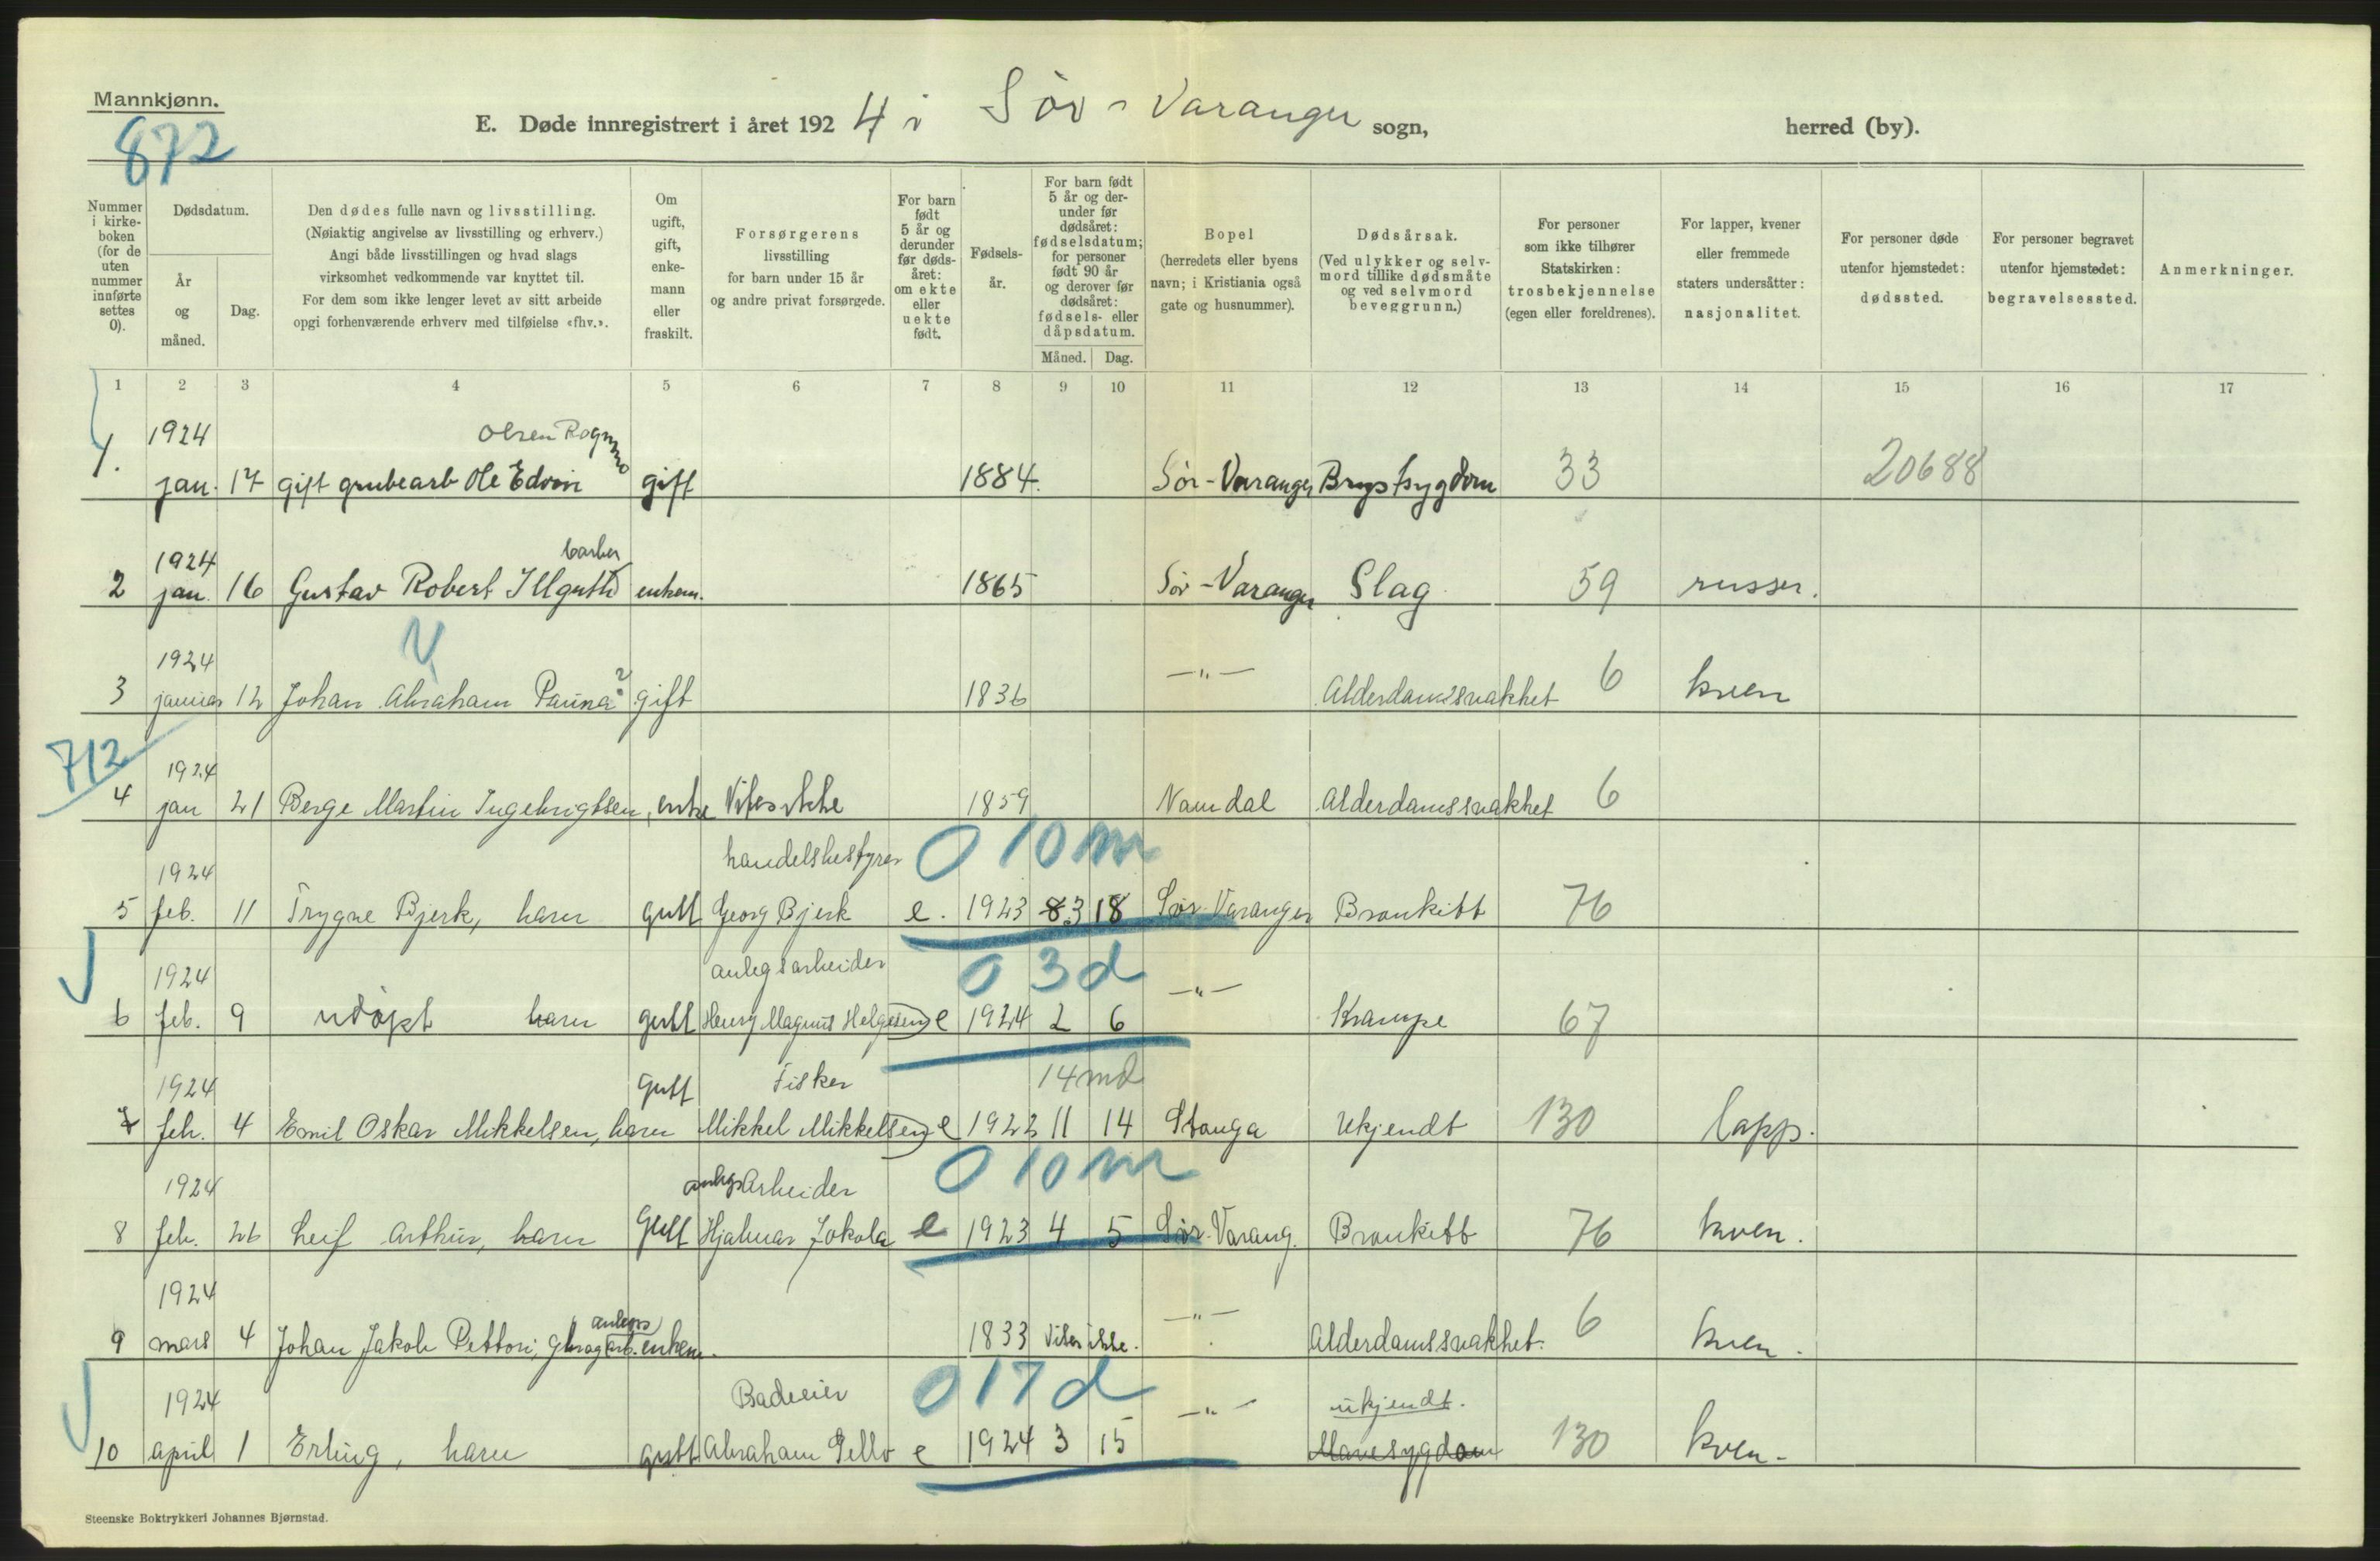 Mannkjønn.
872
E. Døde innregistrert i året 1924 i Sør-Varanger sogn, herred (by).
Nummer i kirkeboken (for de uten nummer innførte settes 0).
Dødsdatum.
År og måned.
Dag.
Den dødes fulle navn og livsstilling.
(Nøiaktig angivelse av livsstilling og erhverv.)
Angi både livsstillingen og hvad slags
virksomhet vedkommende var knyttet til.
For dem som ikke lenger levet av sitt arbeide
opgi forhenværende erhverv med tilføielse «fhv.».
Om ugift, gift, enkemann eller fraskilt.
Forsørgerens
livsstilling
for barn under 15 år
og andre privat forsørgede.
For barn født 5 år og derunder før dødsåret: om ekte eller uekte født.
Fødselsår.
For barn født 5 år og derunder før dødsåret: fødselsdatum; for personer født 90 år og derover før dødsåret: fødsels- eller dåpsdatum.
Måned. Dag.
Bopel
(herredets eller byens
navn; i Kristiania også
gate og husnummer).
Dødsårsak.
(Ved ulykker og selvmord tillike dødsmåte og ved selvmord beveggrunn.)
For personer
som ikke tilhører
Statskirken:
trosbekjennelse
(egen eller foreldrenes).
For lapper, kvener
eller fremmede
staters undersåtter:
nasjonalitet.
For personer døde
utenfor hjemstedet:
dødssted.
For personer begravet
utenfor hjemstedet:
begravelsessted.
Anmerkninger.
1 2 3 4 5 6 7 8 9 10 11 12 13 14 15 16 17
1924 Olsen Rognmo
1. jan. 17 gift grubearb Ole Edvin gift 1884. Sør-Varanger Brystsygdom 33 20688
1924 barber
2 jan. 16 Gustav Robert Illguth enkem. 1865 Sør-Varanger Slag 59 russer.
1924
3 januar 12 Johan Abraham Pauna? gift 1836 -"- Alderdomssvakhet 6 kven
712
1924
4 jan 21 Berge Martin Ingebrigtsen, enke Vites ikke 1859 Namdal Alderdomssvakhet 6
1924 handelsbestyrer 0 10 m
5 feb. 11 Trygve Bjerk, barn gutt Georg Bjerk e. 1923 8 3 18 Sør-Varanger Bronkitt 76
1924 anlegsarbeider 0 3 d
6 feb. 9 udøpt barn gutt Henry Magnus Helgesen e 1924 2 6 -"- Krampe 67
1924 gutt Fisker 14 md
7 feb. 4 Emil Oskar Mikkelsen, barn Mikkel Mikkelsen e 1922 11 14 Stonga Ukjendt 130 lapp.
1924 anlegsarbeider 0 10 m
8 feb. 26 Leif Arthur, barn Gutt Hjalmar Jokola e 1923 4 5 Sør-Varang. Bronkitt 76 kven.
1924 anlegs
9 mars 4 Johan Jakob Pettori, arb. enkem. 1833 Vites ikke. -"- Alderdomssvakhet. 6 kven.
1924 0 17 d ukjendt.
10 april 1 Erling, barn gutt Abraham e 1924 3 15 -"- Mavesygdom 130 kven.
Steenske Boktrykkeri Johannes Bjørnstad.